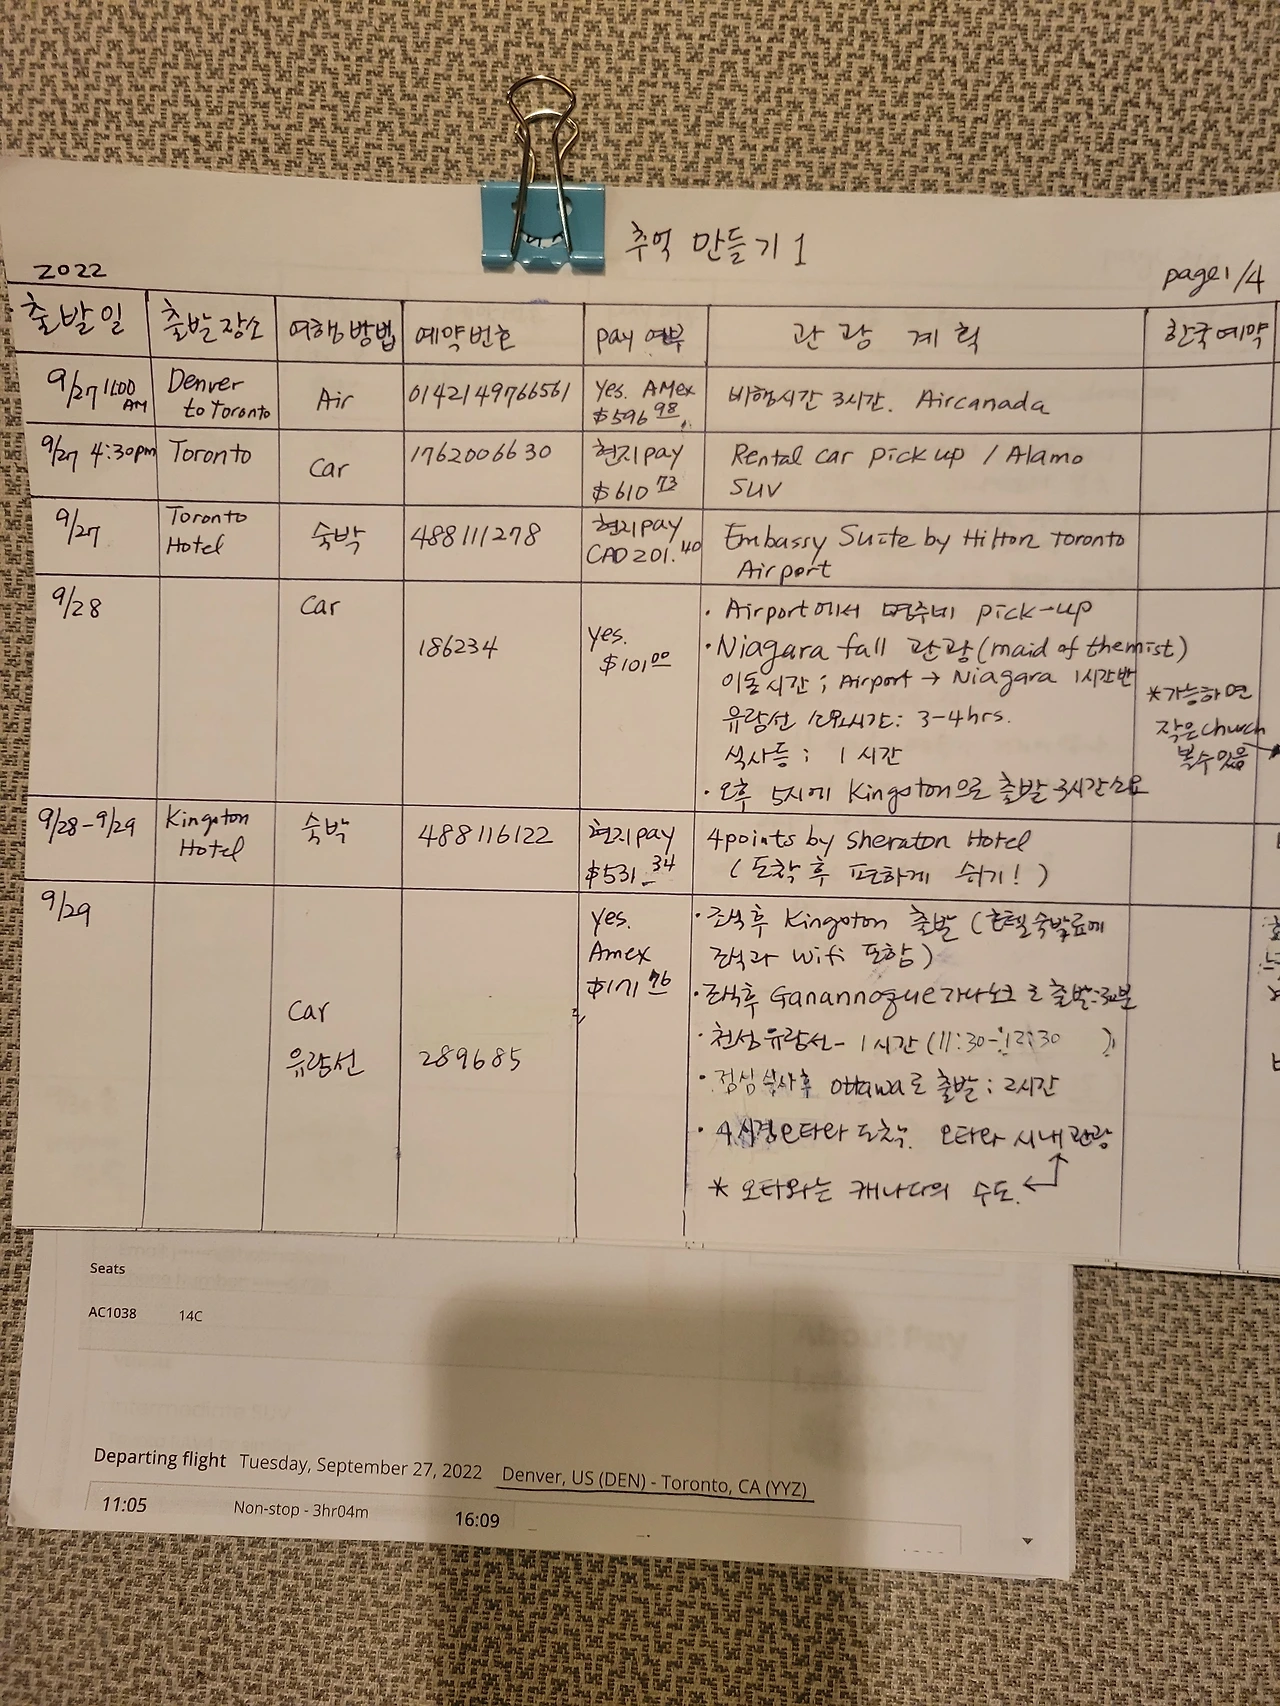 추억 만들기 1
2022
page 1/4
출발일 출발장소 여행방법 예약번호 pay 여부 관광 계획 한국예약
9/27 11:00 AM Denver to Toronto Air 0142149766561 Yes. AMex $596.98 비행시간 3시간. Aircanada
9/27 4:30pm Toronto Car 1762006630 현지pay $610.73 Rental car pick up / Alamo
SUV
9/27 Toronto Hotel 숙박 488111278 현지pay CAD 201.40 Embassy Suite by Hilton Toronto
Airport
9/28 Car 186234 yes. $101.00
· Airport에서 pick-up
· Niagara fall 관광(maid of the mist)
이동시간 ; Airport → Niagara 1시간반
유람선 시간: 3-4hrs.
식사등 ; 1시간
· 오후 5시에 Kingston으로 출발 3시간소요
*가능하면
작은church
볼수있음
9/28-9/29 Kingston Hotel 숙박 488116122 현지pay $531.34 4points by Sheraton Hotel
(도착후 편하게 쉬기!)
9/29 Car 유람선 289685 yes. Amex $171.76
· 조식후 Kingston 출발 (호텔숙박료에
조식과 wifi 포함)
· 조식후 Ganannogue 가나노크로 출발:30분
· 천섬유람선- 1시간 (11:30-12:30 )
· 점심식사후 ottawa로 출발 ; 2시간
· 4시경 오타와 도착. 오타와 시내관광
* 오타와는 캐나다의 수도.
Seats
AC1038 14C
Departing flight Tuesday, September 27, 2022 Denver, US (DEN) - Toronto, CA (YYZ)
11:05 Non-stop - 3hr04m 16:09